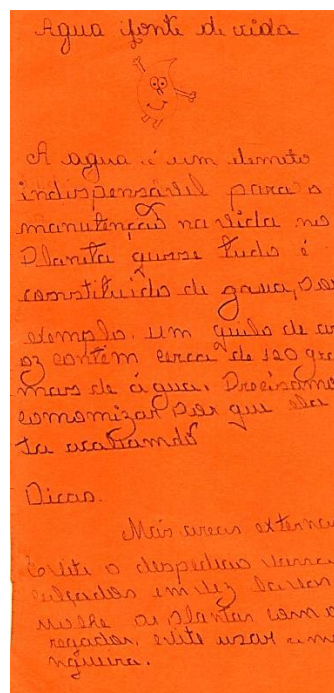 Agua fonte de vida
A agua é um elemeto
indispensável para a
manutenção na vida no
Planeta quase tudo é
constituido de grau, por
exemplo. um quilo de arr
oz contém cerca de 120 gra
mas de água. Precisamos
economizar por que ela
ta acabando
Dicas.
Mas areas externas
Evite o despedicio varra
calçadas em vez lavar
molhe as plantas com o
regador, evite usar a ma
ngueira.